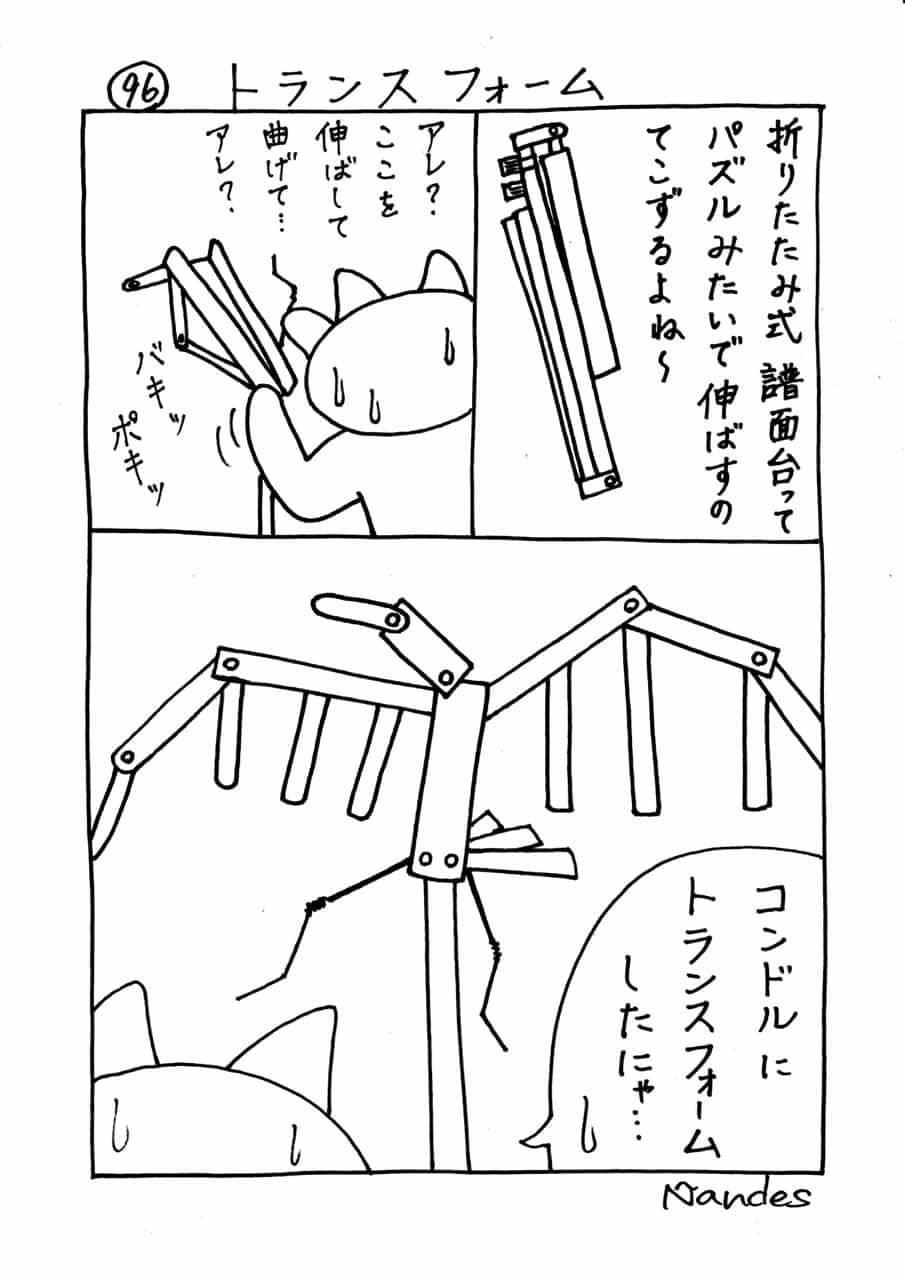 96 トランスフォーム
折りたたみ式 譜面台って
パズルみたいで 伸ばすの
てこずるよね〜
アレ?
ここを
伸ばして
曲げて…
アレ?
バキッ
ポキッ
コンドルに
トランスフォーム
したにゃ…
Nandes